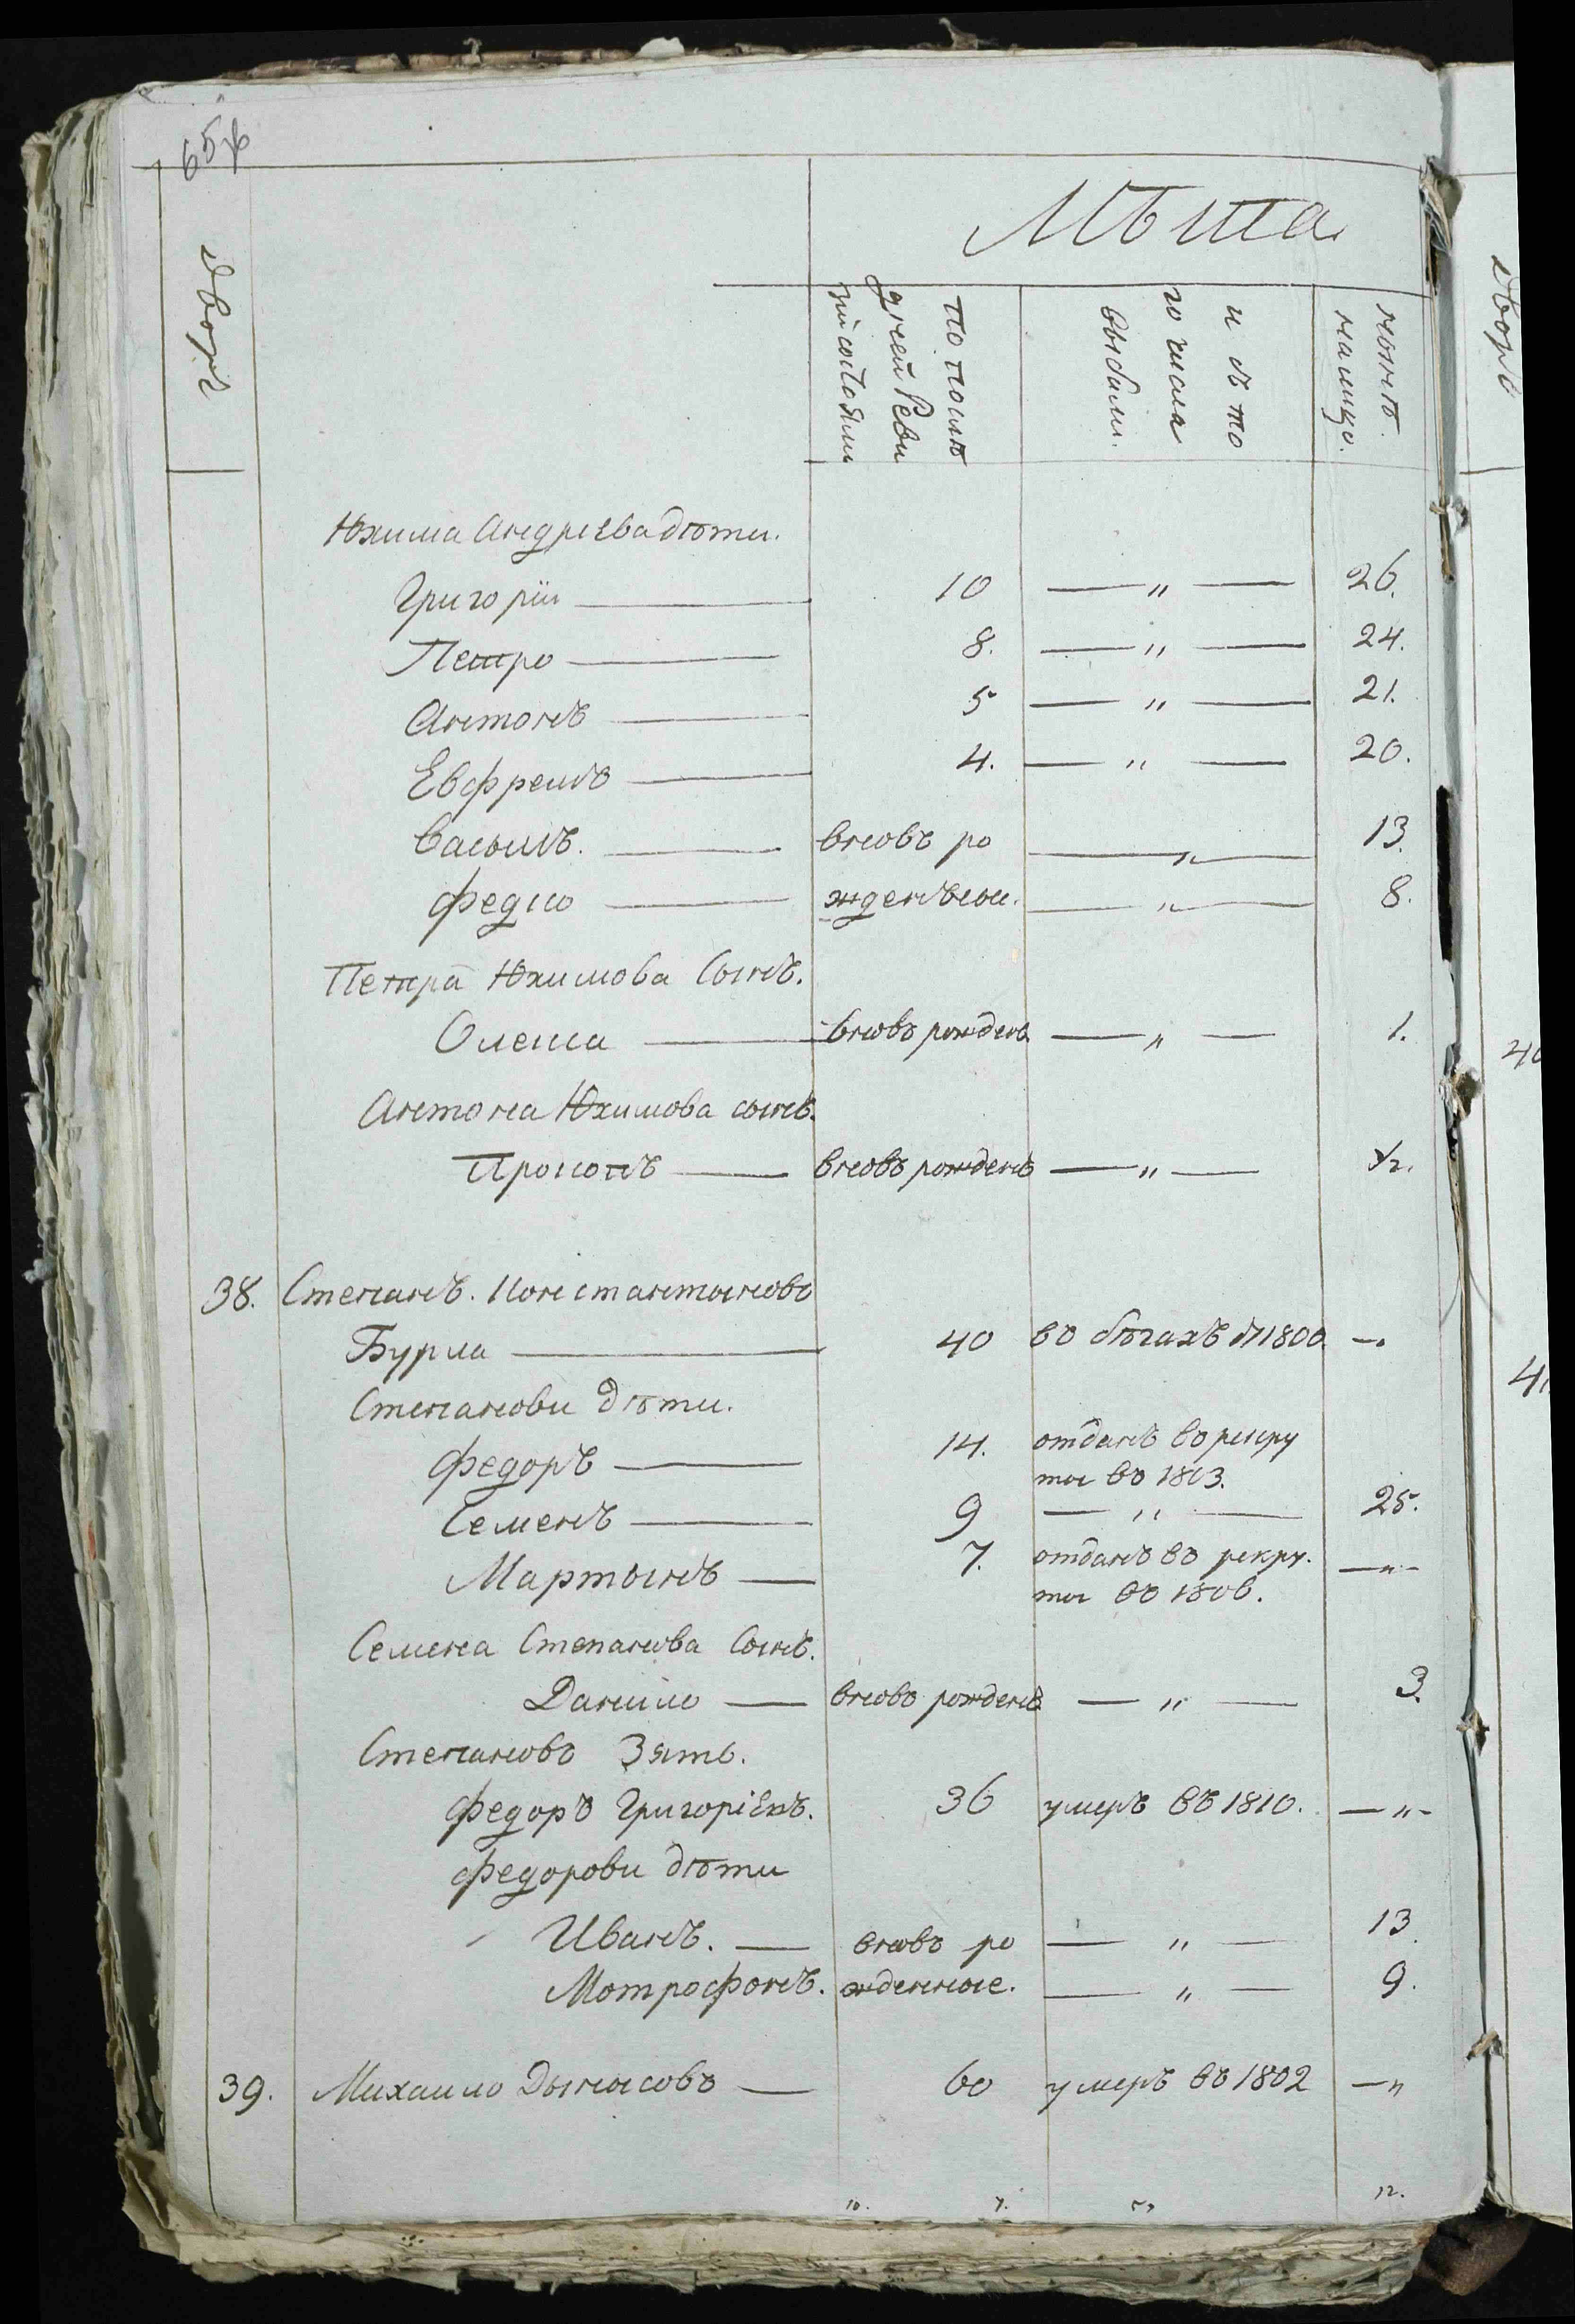 Лѣта
дворъ
по посло
дней Реви
зiи состояли
и съ то
го числа
выбыли.
нынѣ
налицо.
Юхима Андрiева дѣти.
Григорiи 10 — „ — 26.
Петро 8. — „ — 24.
Антонъ 5 — „ — 21.
Евфремъ 4. — „ — 20.
Васылъ. вновъ ро — „ — 13.
Федко жденъные. — „ — 8.
Петра Юхимова Сынъ.
Олекса вновъ рожденъ — „ — 1.
Антона Юхимова сынъ.
Прокопъ вновъ рожденъ — „ — ½.
38. Степанъ. Константыновъ
Бурла 40 въ бѣгахъ 1800. —
Степанови дѣти.
Федоръ 14. отданъ въ рекру
ты въ 1803.
Семенъ 9 — „ — 25.
Мартынъ 7. отданъ въ рекру.
ты въ 1806. — „ —
Семена Степанова Сынъ.
Данило вновъ рожденъ — „ — 3.
Степановъ Зять.
Федоръ Григорiевъ. 36 умеръ въ 1810. — „ —
Федорови дѣти
Иванъ. вновъ ро — „ — 13
Мотрофонъ. жденные. — „ — 9.
39. Михаило Дынысовъ 60 умеръ въ 1802 — „
10. 7. 5, 12.
дворъ